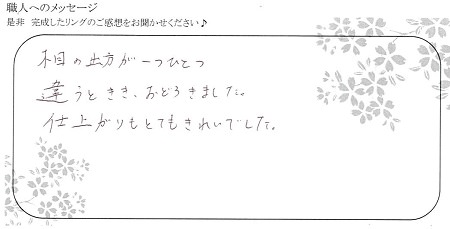 職人へのメッセージ
是非 完成したリングのご感想をお聞かせください♪
木目の出方が一つひとつ
違うときき、おどろきました。
仕上がりもとてもきれいでした。